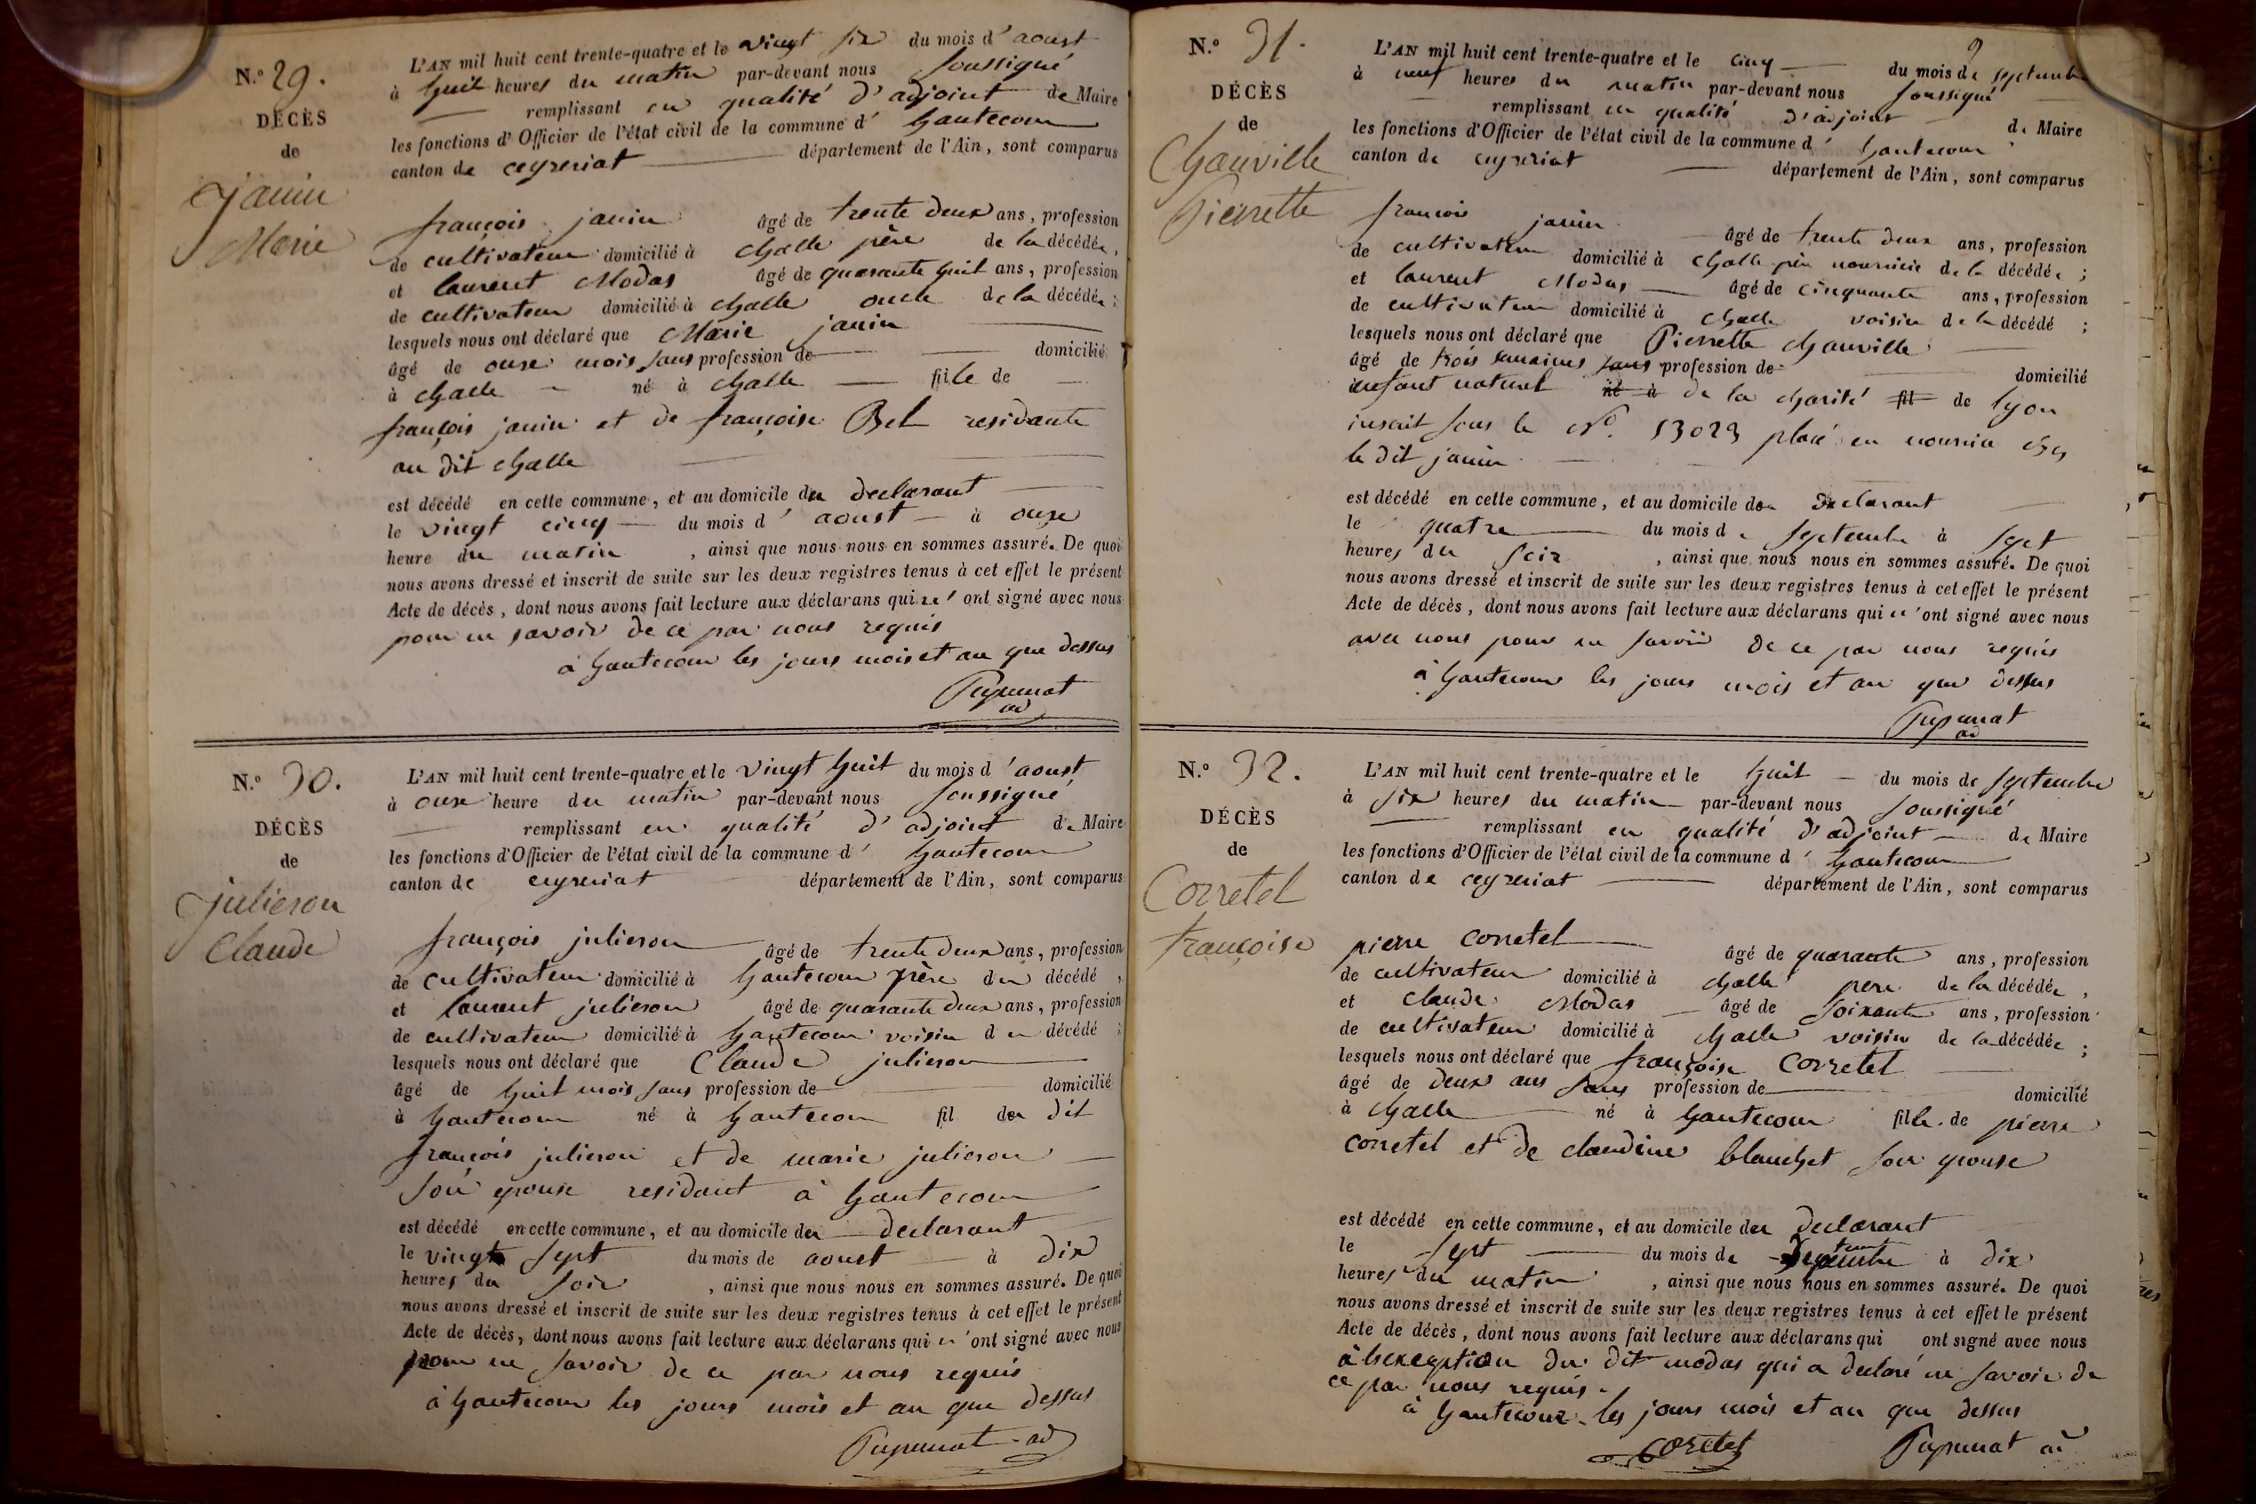 N.º 29.
DÉCÈS
de
janin
Marie
L'AN mil huit cent trente-quatre et le vingt six du mois d'aoust
à huit heures du matin par-devant nous soussigné
remplissant en qualité d'adjoint de Maire
les fonctions d'Officier de l'état civil de la commune d'hautecour
canton de ceyzeriat département de l'Ain, sont comparus
françois janin âgé de trente deux ans, profession
de cultivateur domicilié à challe père de la décédée,
et laurent Modas âgé de quarante huit ans, profession
de cultivateur domicilié à challe oncle de la décédée;
lesquels nous ont déclaré que Marie janin
âgé de onze mois sans profession de domicilié
à challe né à challe fille de
françois janin et de françoise Bel residante
au dit challe
est décédé en cette commune, et au domicile du declarant
le vingt cinq du mois d'aoust à onze
heure du matin, ainsi que nous nous en sommes assuré. De quoi
nous avons dressé et inscrit de suite sur les deux registres tenus à cet effet le présent
Acte de décès, dont nous avons fait lecture aux déclarans qui n'ont signé avec nous
pour ne savoir de ce par nous requis
à hautecour les jours mois et an que dessus
Pupunat
ad
N.º 30.
DÉCÈS
de
julieron
Claude
L'AN mil huit cent trente-quatre et le vingt huit du mois d'aoust
à onze heure du matin par-devant nous soussigné
remplissant en qualité d'adjoint de Maire
les fonctions d'Officier de l'état civil de la commune d'hautecour
canton de ceyzeriat département de l'Ain, sont comparus
françois julieron âgé de trente deux ans, profession
de cultivateur domicilié à hautecour père du décédé,
et laurent julieron âgé de quarante deux ans, profession
de cultivateur domicilié à hautecour voisin du décédé;
lesquels nous ont déclaré que Claude julieron
âgé de huit mois sans profession de domicilié
à hautecour né à hautecour fil du dit
françois julieron et de marie julieron
son epouse residant à hautecour
est décédé en cette commune, et au domicile du declarant
le vingt sept du mois de aoust à dix
heures du soir, ainsi que nous nous en sommes assuré. De quoi
nous avons dressé et inscrit de suite sur les deux registres tenus à cet effet le présent
Acte de décès, dont nous avons fait lecture aux déclarans qui n'ont signé avec nous
pour ne savoir de ce par nous requis
à hautecour les jours mois et an que dessus
Pupunat ad
N.º 31.
DÉCÈS
de
Chauville
Pierrette
L'AN mil huit cent trente-quatre et le cinq du mois de septembre
à neuf heures du matin par-devant nous soussigné
remplissant en qualité d'adjoint de Maire
les fonctions d'Officier de l'état civil de la commune d'hautecour
canton de ceyzeriat département de l'Ain, sont comparus
françois janin âgé de trente deux ans, profession
de cultivateur domicilié à challe père nourricie de la décédée;
et laurent Modas âgé de cinquante ans, profession
de cultivateur domicilié à challe voisin de la décédé;
lesquels nous ont déclaré que Pierrette chauville
âgé de trois semaines sans profession de domicilié
enfant naturel né à de la charité fil de lyon
inscrit sous le Nº. 13023 placé en nourrice chez
le dit janin
est décédé en cette commune, et au domicile du declarant
le quatre du mois de septembre à sept
heures du soir, ainsi que nous nous en sommes assuré. De quoi
nous avons dressé et inscrit de suite sur les deux registres tenus à cet effet le présent
Acte de décès, dont nous avons fait lecture aux déclarans qui n'ont signé avec nous
avec nous pour ne savoir de ce par nous requis
à hautecour les jours mois et an que dessus
Pupunat
ad
N.º 32.
DÉCÈS
de
Corretel
françoise
L'AN mil huit cent trente-quatre et le huit du mois de septembre
à six heures du matin par-devant nous soussigné
remplissant en qualité d'adjoint de Maire
les fonctions d'Officier de l'état civil de la commune d'hautecour
canton de ceyzeriat département de l'Ain, sont comparus
pierre corretel âgé de quarante ans, profession
de cultivateur domicilié à challe pere de la décédée,
et claude Modas âgé de soixante ans, profession
de cultivateur domicilié à challe voisin de la décédée;
lesquels nous ont déclaré que françoise corretel
âgé de deux ans sans profession de domicilié
à challe né à hautecour fille de pierre
corretel et de claudine blanchet son epouse
est décédé en cette commune, et au domicile du declarant
le sept du mois de septembre à dix
heures du matin, ainsi que nous nous en sommes assuré. De quoi
nous avons dressé et inscrit de suite sur les deux registres tenus à cet effet le présent
Acte de décès, dont nous avons fait lecture aux déclarans qui ont signé avec nous
à l'exception du dit modas qui a declaré ne savoir de
ce par nous requis.
à hautecour les jours mois et an que dessus
corretel Pupunat ad